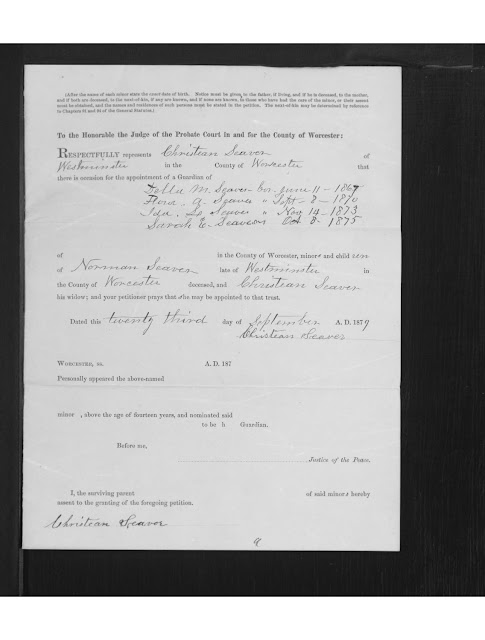 (After the name of each minor state the exact date of birth. Notice must be given to the father, if living, and if he is deceased, to the mother,
and if both are deceased, to the next-of-kin, if any are known, and if none are known, to those who have had the care of the minor, or their assent
must be obtained, and the names and residences of such persons must be stated in the petition. The next-of-kin may be determined by reference
to Chapters 91 and 95 of the General Statutes.)
To the Honorable the Judge of the Probate Court in and for the County of Worcester:
RESPECTFULLY represents Christian Seaver of
Westminster in the County of Worcester that
there is occasion for the appointment of a Guardian of
Della M. Seaver bor June 11 - 1867
Flora A. Seaver " Sept - 8 - 1870
Ida Seaver " Nov 14 - 1873
Sarah E. Seaver Oct 8 - 1875
of in the County of Worcester, minors and children
of Norman Seaver late of Westminster in
the County of Worcester deceased, and Christian Seaver
his widow; and your petitioner prays that she may be appointed to that trust.
Dated this twenty third day of September A. D. 1879
Christian Seaver
WORCESTER, ss. A. D. 187
Personally appeared the above-named
minor , above the age of fourteen years, and nominated said
to be h Guardian.
Before me,
Justice of the Peace.
I, the surviving parent of said minors hereby
assent to the granting of the foregoing petition.
Christian Seaver